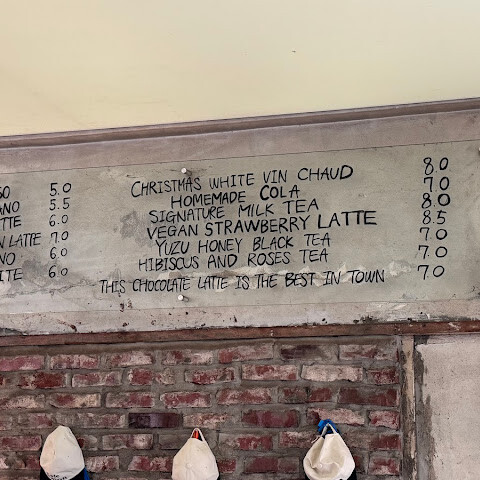 5.0
5.5
6.0
LATTE 7.0
6.0
6.0
CHRISTMAS WHITE VIN CHAUD 8.0
HOMEMADE COLA 7.0
SIGNATURE MILK TEA 8.0
VEGAN STRAWBERRY LATTE 8.5
YUZU HONEY BLACK TEA 7.0
HIBISCUS AND ROSES TEA 7.0
THIS CHOCOLATE LATTE IS THE BEST IN TOWN 7.0